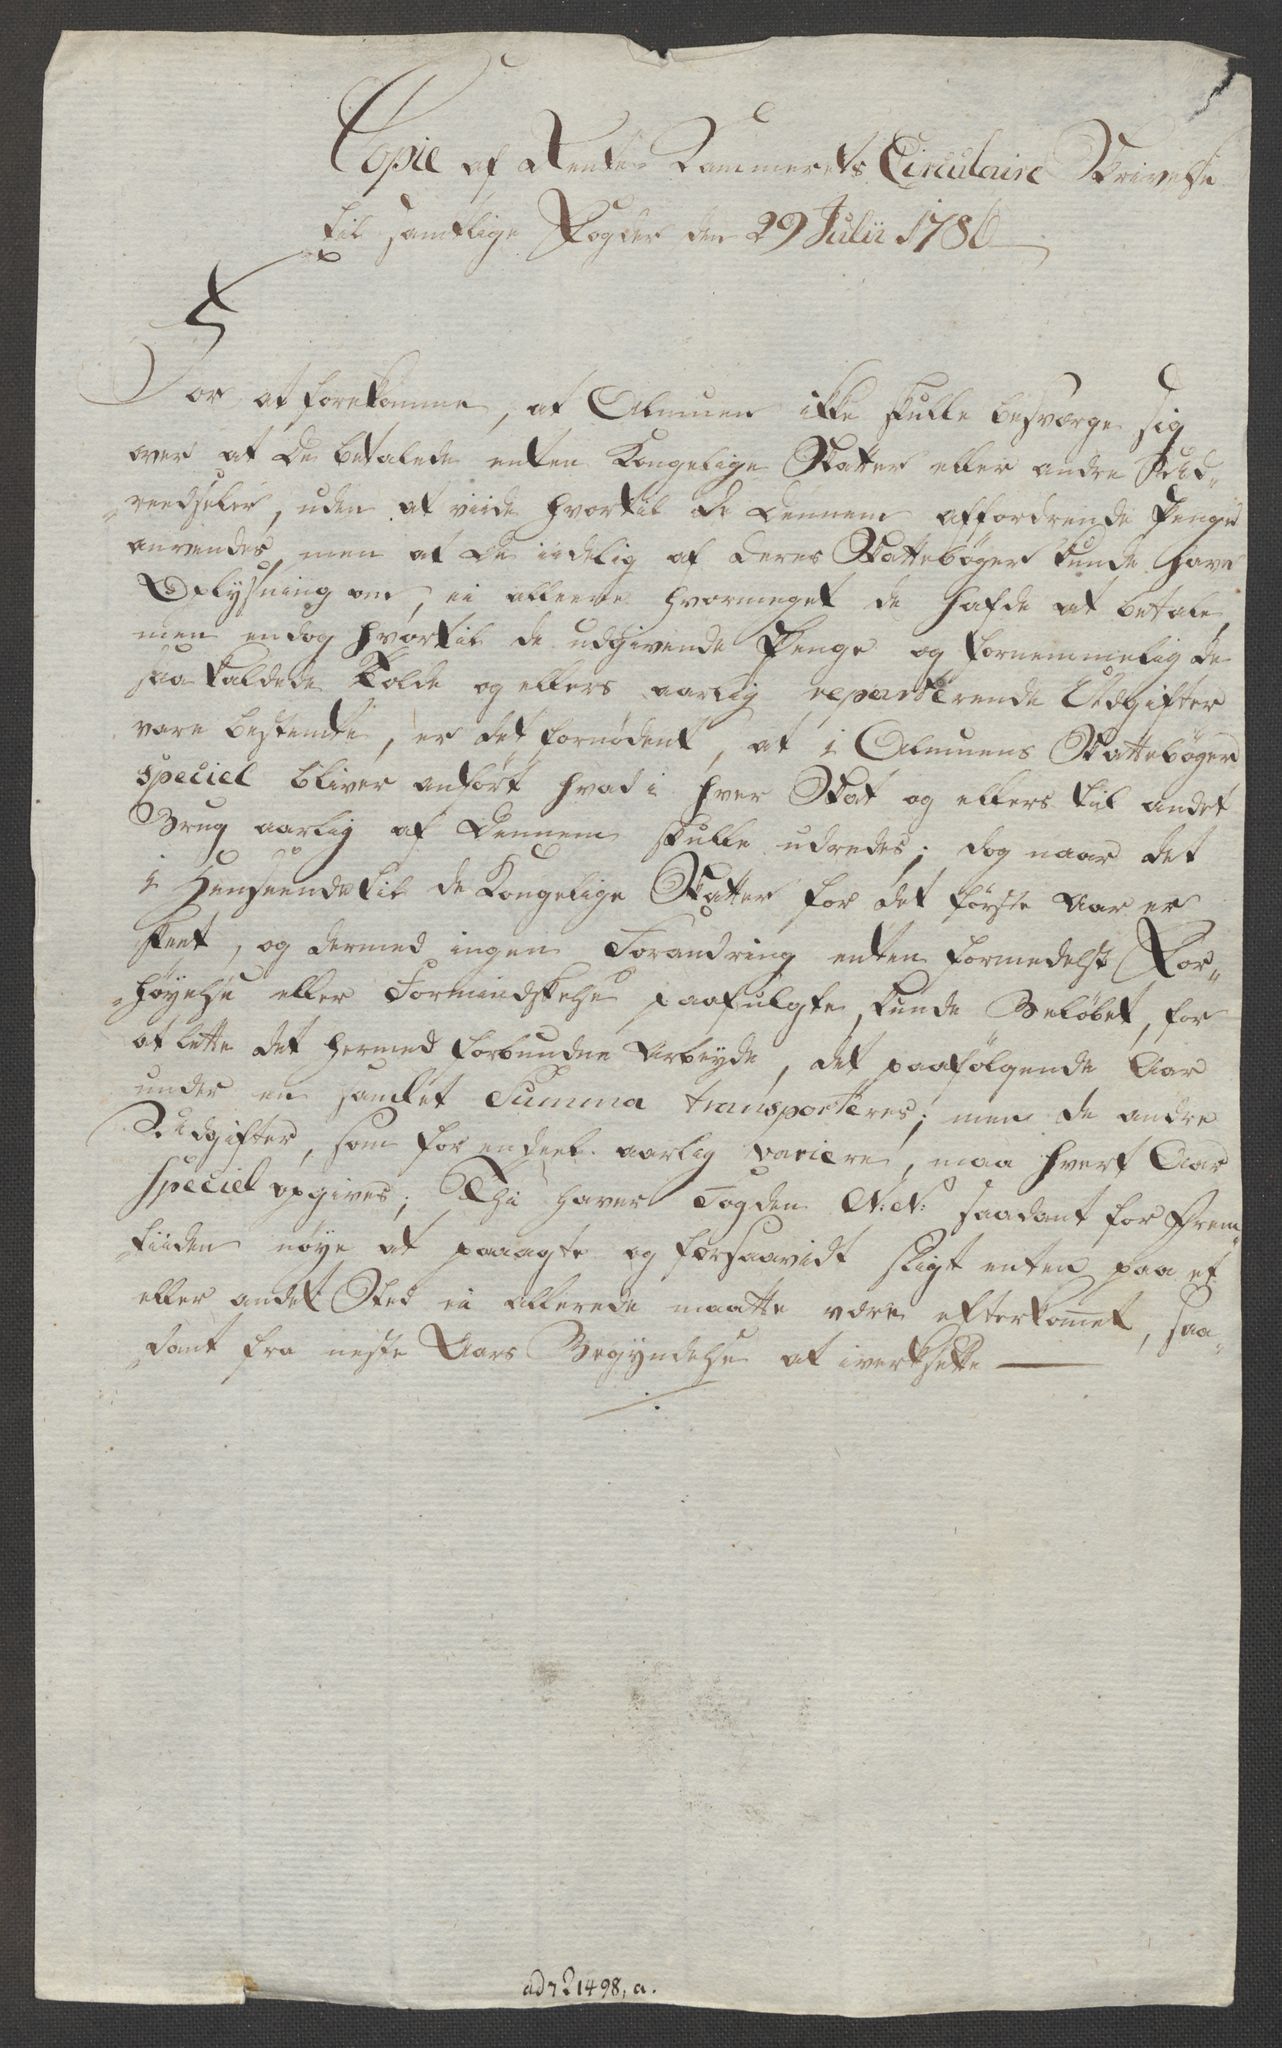 Copie af Rente Kammerets Circulaire Skrivelse
til samtlige Fogder den 29 Julii 1786
For at forekomme, at Almuen ikke skulle besværge sig
over at de betalede enten Kongelige Skatter eller andre Ud-
-reedseler, uden at viide hvortil de dennem affordrende Penge
anvendes, men at de iidelig af deres Skattebøger kunde have
Oplysning om, ei alleene hvormeget de hafde at betale,
men endog hvortil de udgivende Penge og fornemmelig de
saa kaldede Tolde og ellers aarlig reparterende Udgifter
vare bestemte, er det fornødent, at i Almuens Skattebøger
speciel bliver anført hvad i hver Skat og ellers til andet
Brug aarlig af dennem skulle udredes; dog naar det
i Henseende til de Kongelige Skatter for det første Aar er
skeet, og dermed ingen Forandring enten formedelst For-
-høyelse eller Formindskelse paafulgte, kunde Beløbet, for
at lette det hermed forbundne Arbeyde, det paafølgende Aar
under en samlet Summa transporteres; men de andre
Udgifter, som for endeel aarlig variere, maa hvert Aar
speciel opgives; Thi haver Fogden N: N: saadant for Frem-
tiiden nøye at paaagte og forsaavidt sligt enten paa et
eller andet Sted ei allerede maatte være efterkomet, saa-
-dant fra neste Aars Begyndelse at iverksette
ad 721498, a.